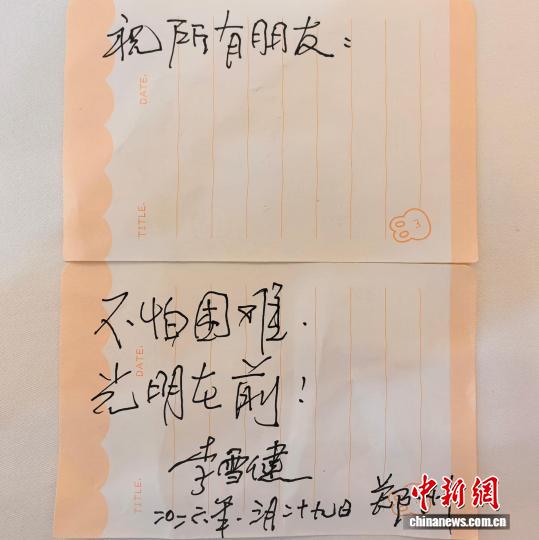 祝所有朋友：
DATE.
TITLE.
不怕困难.
光明在前！
DATE.
TITLE.
李雪健
二〇二六年.二月二十九日
郑
中新网
www.
chinanews.com